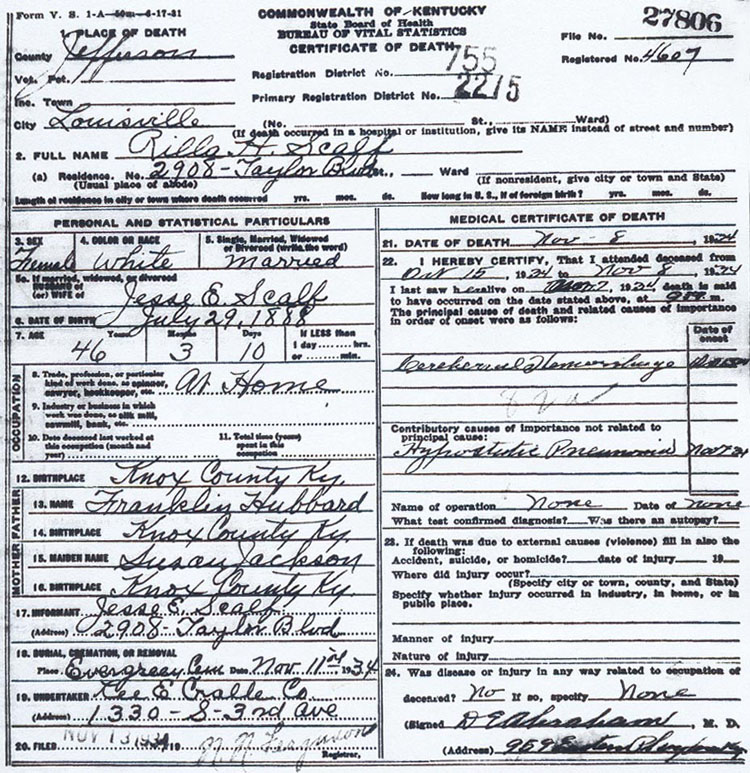 Form V. S. 1-A—50m—6-17-31
COMMONWEALTH OF KENTUCKY
State Board of Health
BUREAU OF VITAL STATISTICS
CERTIFICATE OF DEATH
27806
File No.
Registered No. 4607
1 PLACE OF DEATH
County Jefferson
Vot. Pct.
Inc. Town
City Louisville
Registration District No. 755
Primary Registration District No. 2275
(No. St., Ward)
(If death occurred in a hospital or institution, give its NAME instead of street and number)
2. FULL NAME Rilla H. Scalf
(a) Residence. No. 2908 - Taylor Blvd St., Ward
(Usual place of abode) (If nonresident, give city or town and State)
Length of residence in city or town where death occurred yrs. mos. ds. How long in U. S., if of foreign birth? yrs. mos. ds.
PERSONAL AND STATISTICAL PARTICULARS
3. SEX 4. COLOR OR RACE 5. Single, Married, Widowed or Divorced (write the word)
Female White Married
5a. If married, widowed, or divorced
HUSBAND of
(or) WIFE of Jesse E. Scalf
6. DATE OF BIRTH July 29, 1888
7. AGE Years Months Days If LESS than
46 3 10 1 day hrs.
or min.
OCCUPATION
8. Trade, profession, or particular kind of work done, as spinner, sawyer, bookkeeper, etc. At Home
9. Industry or business in which work was done, as silk mill, sawmill, bank, etc.
10. Date deceased last worked at this occupation (month and year)
11. Total time (years) spent in this occupation
12. BIRTHPLACE Knox County Ky.
FATHER
13. NAME Franklin Hubbard
14. BIRTHPLACE Knox County Ky.
MOTHER
15. MAIDEN NAME Susan Jackson
16. BIRTHPLACE Knox County Ky.
17. INFORMANT Jesse E. Scalf
(Address) 2908 - Taylor Blvd
18. BURIAL, CREMATION, OR REMOVAL
Place Evergreen Cem Date Nov 11 1934
19. UNDERTAKER Lee E Cralle Co.
(Address) 1330 - S - 3rd Ave
20. FILED NOV 13 1934 19
Registrar.
MEDICAL CERTIFICATE OF DEATH
21. DATE OF DEATH Nov - 8, 1934
22. I HEREBY CERTIFY, That I attended deceased from
Oct 15, 1934 to Nov 8, 1934
I last saw her alive on 1934 death is said
to have occurred on the date stated above, at m.
The principal cause of death and related causes of importance
in order of onset were as follows:
Date of onset
Cerebral Hemorrhage
Contributory causes of importance not related to
principal cause:
Hypostatic Pneumonia Nov 7 34
Name of operation None Date of None
What test confirmed diagnosis? Was there an autopsy?
23. If death was due to external causes (violence) fill in also the
following:
Accident, suicide, or homicide? date of injury 19
Where did injury occur?
(Specify city or town, county, and State)
Specify whether injury occurred in industry, in home, or in
public place.
Manner of injury
Nature of injury
24. Was disease or injury in any way related to occupation of
deceased? No If so, specify None
(Signed D E Abraham, M. D.
(Address) 959